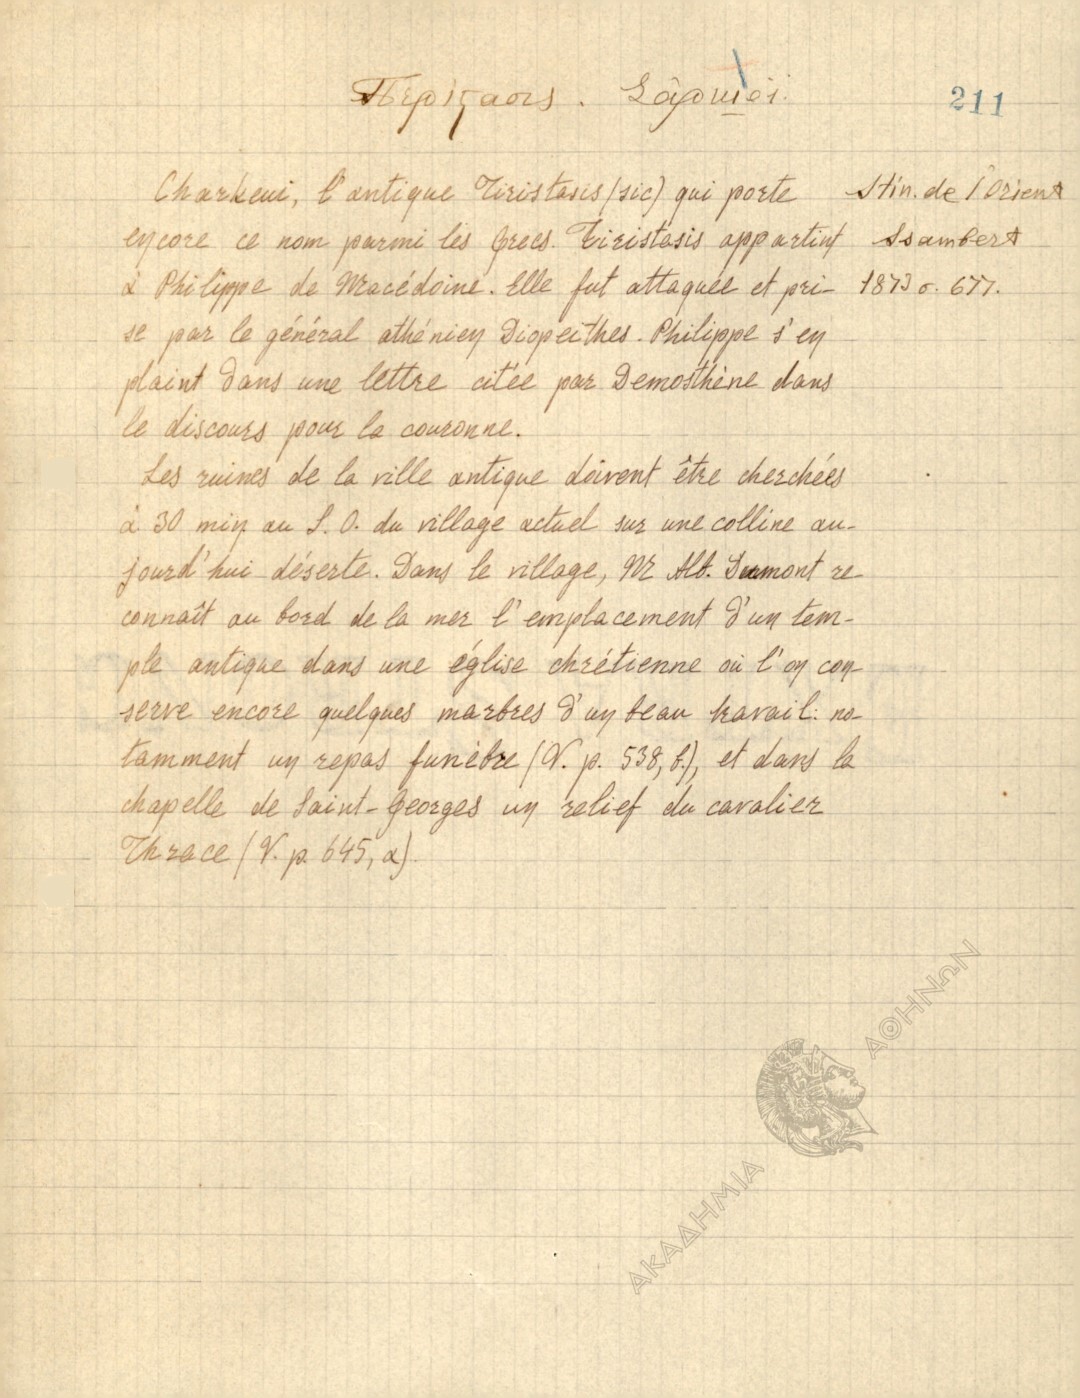 Περίστασις. Σάρκιοϊ.
211
Charkeui, l'antique Tiristasis (sic) qui porte
encore ce nom parmi les Grecs. Tiristasis appartint
à Philippe de Macédoine. Elle fut attaquée et pri-
se par le général athénien Diopeithes. Philippe s'en
plaint dans une lettre citée par Demosthène dans
le discours pour la couronne.
Les ruines de la ville antique doivent être cherchées
à 30 min au S. O. du village actuel sur une colline au-
jourd'hui déserte. Dans le village, Mr Alb. Dumont re-
connaît au bord de la mer l'emplacement d'un tem-
ple antique dans une église chrétienne où l'on con-
serve encore quelques marbres d'un beau travail: no-
tamment un repas funèbre (V. p. 538, b.), et dans la
chapelle de Saint-Georges un relief du cavalier
Thrace (V. p. 645, a).
Itin. de l'Orient
Isambert
1873 σ. 677.
ΑΚΑΔΗΜΙΑ ΑΘΗΝΩΝ